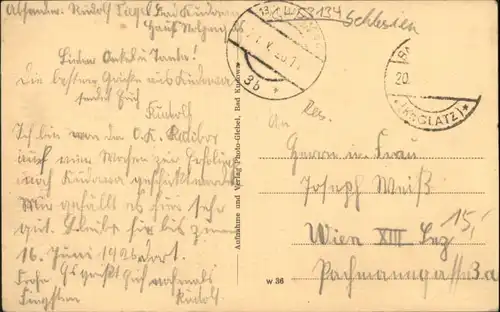 Absender: Rudolf Bad Kudowa
Haus
C 53134 Schlesien
Lieber Onkel u. Tante!
Die besten Grüße aus Kudowa
sendet Euch
Rudolf
Ich bin von der O.K. Ratibor
auf vier Wochen zur Erholung
nach Kudowa geschickt worden.
Mir gefällt es hier sehr
gut. Bleibe hier bis zum
16. Juni 1926 dort.
Es grüßt Euch nochmals
Frohe
Pfingsten Rudolf
Aufnahme und Verlag Photo-Giebel, Bad Kudowa
w 36
3b
20.
(KR. GLATZ)
An
Herrn u. Frau
Joseph Weiß
Wien XIII
15,-
Pachmanngasse 3a